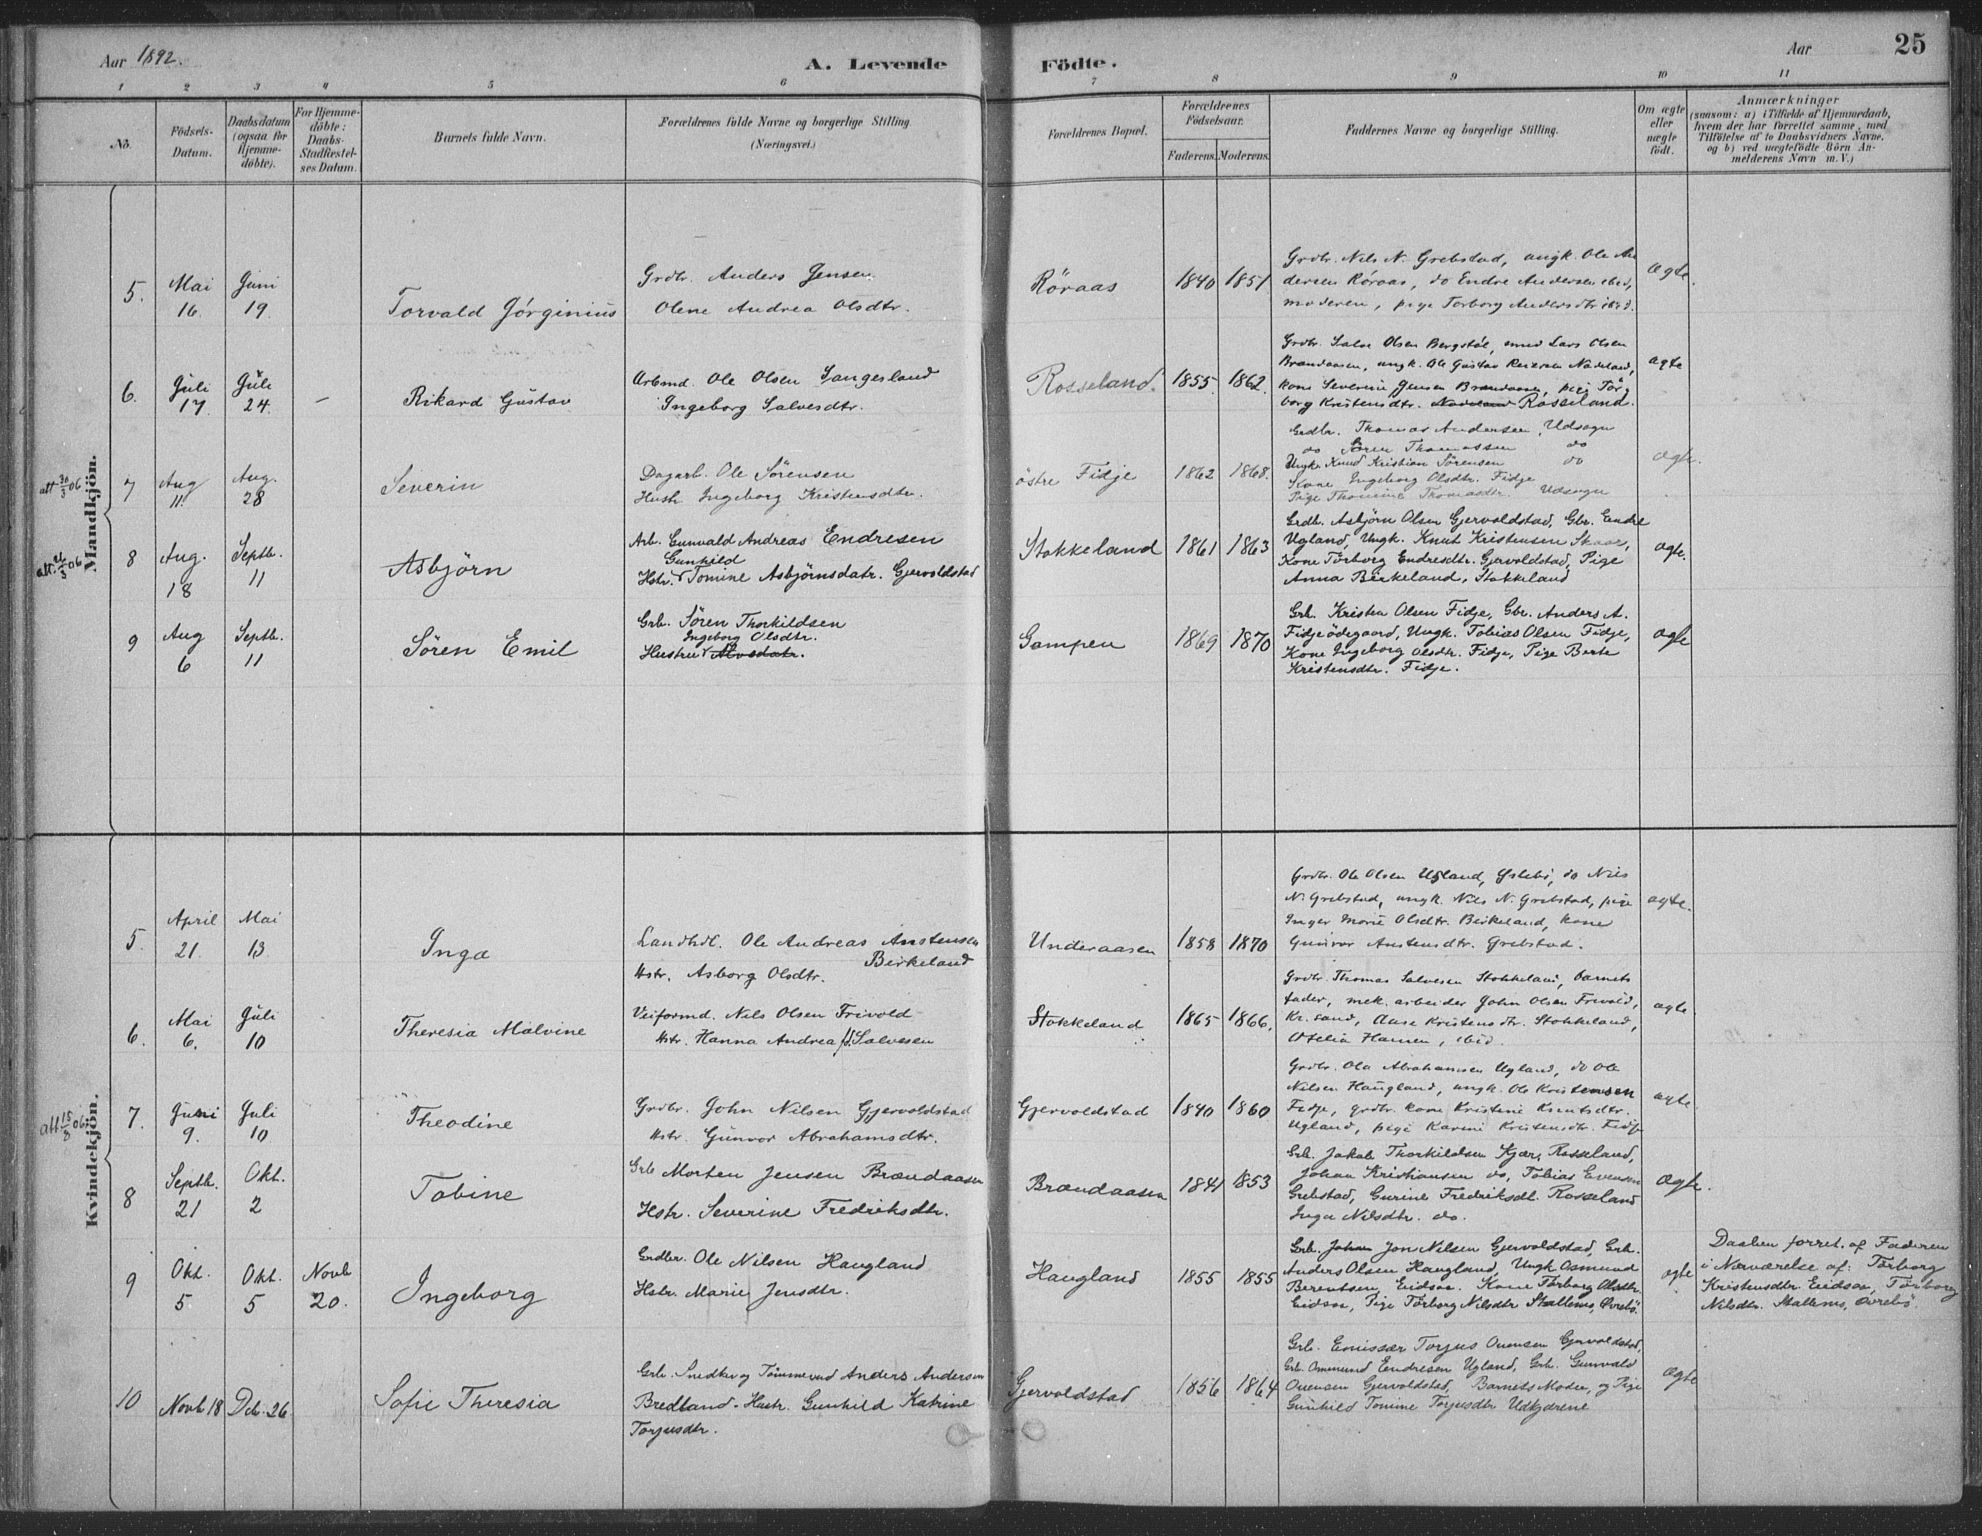 Aar 1892.
A. Levende
Födte.
Aar
25
1 2 3 4 5 6 7 8 9 10 11
No.
Födsels-Datum.
Daabsdatum (ogsaa for Hjemme-döbte).
For Hjemme-döbte: Daabs-Stadfæstel-ses Datum.
Barnets fulde Navn.
Forældrenes fulde Navne og borgerlige Stilling. (Næringsvei.)
Forældrenes Bopæl.
Forældrenes Födselsaar.
Faderens. Moderens.
Faddernes Navne og borgerlige Stilling.
Om ægte eller uægte födt.
Anmærkninger
(saasom: a) i Tilfælde af Hjemmedaab, hvem der har forrettet samme, med Tilföielse af to Daabsvidners Navne. og b) ved uægtefödte Börn An-melderens Navn m. V.)
Mandkjön.
5. Mai 16. Juni 19.
Torvald Jörginius
Grdbr. Anders Jensen
Olene Andrea Olsdtr.
Röraas 1840 1851.
Grdbr. Nils N. Grebstad, ungk. Ole An
dersen Röraas, do Endre Andersen ibid,
moderen, pige Torborg Andersdtr ibid.
ægte.
6. Juli 17 Juli 24. –
Rikard Gustav
Arbmd. Ole Olsen Langesland
Ingeborg Salvesdtr.
Rosseland. 1855. 1862.
Grdbr. Salve Olsen Bergstöl, smed Lars Olsen
Brandaasen, ungk. Ole Gustav Nodeland,
kone Severine Jensen Brandaasen, pige Tor
borg Kristensdtr. Nodeland Rosseland.
ægte
alt 30/3 06
7 Aug 11. Aug. 28
Severin
Dagarb. Ole Sörensen
Hustr. Ingeborg Kristensdtr.
östre Fidje 1862 1868.
Grdbr. Thomas Andersen, Udsogn
do Sören Thomassen do
Ungk. Knud Kristian Sörensen do
Kone Ingeborg Olsdtr. Fidje
Pige Thomine Thomasdtr. Udsogn
ægte.
alt. 21/3 06
8 Aug. 18 Septb. 11
Asbjörn
Arb. Gunvald Andreas Endresen
Gunhild
Hstr. √ Tomine Asbjörnsdatr. Gjervoldstad
Stokkeland 1861 1863
Grdb. Asbjörn Olsen Gjervoldstad, Gbr. Endre
Ugland, Ungk. Knut Kristensen Skaar,
Kone Torborg Endresdtr. Gjervoldstad, Pige
Anna Birkeland, Stokkeland
ægte.
9 Aug 6 Septb. 11
Sören Emil
Grb. Sören Thorkildsen
Ingeborg Olsdtr.
Hustru √
Gampen 1869 1870
Grb. Kristen Olsen Fidje, Gbr. Anders A.
Fidjeödegaard, Ungk. Tobias Olsen Fidje,
Kone Ingeborg Olsdtr. Fidje, Pige Berte
Kristensdtr. Fidje.
ægte
Kvindekjön.
5. April 21. Mai 13.
Inga
Landhdl. Ole Andreas Anstensen
Birkeland
Hstr. Asborg Olsdtr.
Underaasen 1858 1870
Grdbr. Ole Olsen Ugland, do Nils
N. Grebstad, ungk. Nils N. Grebstad, pige
Inger Marie Olsdtr. Birkeland, kone
Gunvor Anstensdtr. Grebstad.
ægte.
6. Mai 6. Juli 10
Theresia Malvine
Veiformd. Nils Olsen Frivold
Hstr. Hanna Andrea f. Salvesen
Stokkeland 1865 1866.
Grdbr. Thomas Salvesen Stokkeland, Barnets
fader, mek. arbeider John Olsen Frivold,
Kr. sand, Aase Kristensdtr. Stokkeland,
Otelia Hansen, ibid.
ægte.
alt 15/8 06.
7. Juni 9. Juli 10
Theodine
Grdbr. John Nilsen Gjervoldstad
Hstr. Gunvor Abrahamsdtr.
Gjervoldstad 1840 1860
Grdbr. Ole Abrahamsen Ugland, do Ole
Nilsen Haugland, ungk. Ole Kristensen
Fidje, grdbr. kone Kristine Knutsdtr.
Ugland, pige Karine Kristensdtr. Fidje
ægte
8 Septb. 21 Okt. 2
Tobine
Grb Morten Jensen Brændaasen
Hstr. Severine Fredriksdtr.
Brændaasen 1841 1853
Grb. Jakob Thorkildsen Kjær, Rosseland,
Johan Kristiansen do, Tobias Evensen
Grebstad, Gurine Fredriksdt. Rosseland
Inga Nilsdtr. do.
ægte.
9 Okt. 5 Okt. 5 Novb 20.
Ingeborg
Grdbr. Ole Nilsen Haugland
Hstr. Marie Jensdtr.
Haugland 1855 1855
Grb. Johan Jon Nilsen Gjervoldstad, Grb.
Anders Olsen Haugland, Ungk Osmund
Berentsen Eidsaa. Kone Torborg Olsdtr.
Eidsaa, Pige Torborg Nilsdtr Stallems, Övrebö.
ægte
Daaben forret. af Faderen
i Nærværelse af: Torborg
Kristensdtr. Eidsaa, Torborg
Nilsdtr. Stallems, Övrebö.
10 Novb 18 Dcb. 26
Sofie Theresia
Grb. Snedker og Tömmermd Anders Andersen
Bredland. Hustr. Gunhild Katrine
Torjusdtr.
Gjervoldstad 1856 1864
Grb. Emissær Torjus Gjervoldstad,
Grb. Ommund Eendresen Ugland, Grb. Gunvald
Gjervoldstad, Barnets Moder, og Pige
Gunhild Tomine Torjusdtr Udkjærene
ægte